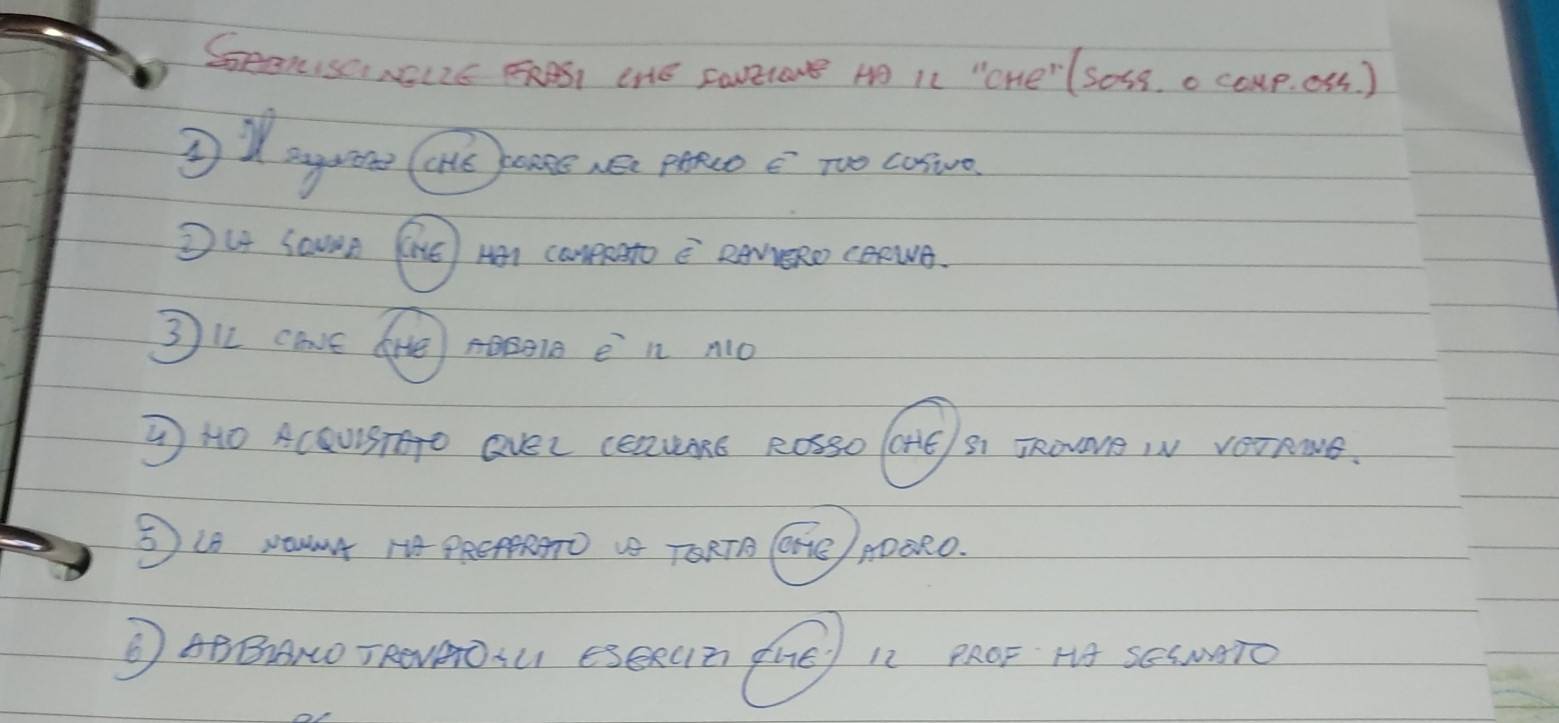 STABILISCI NELLE FRASI CHE FUNZIONE HA IL "CHE" (SOGG. O COMP. OGG.)
1) Il ragazzo CHE CORRE NEL PARCO È TUO CUGINO.
2) LA GONNA CHE HAI COMPRATO È DAVVERO CARINA.
3) IL CANE CHE ABBAIA È IL MIO
4) HO ACQUISTATO QUEL CELLULARE ROSSO CHE SI TROVAVA IN VETRINA.
5) LA NONNA HA PREPARATO LA TORTA CHE ADORO.
6) ABBIAMO TROVATO GLI ESERCIZI CHE IL PROF HA SEGNATO